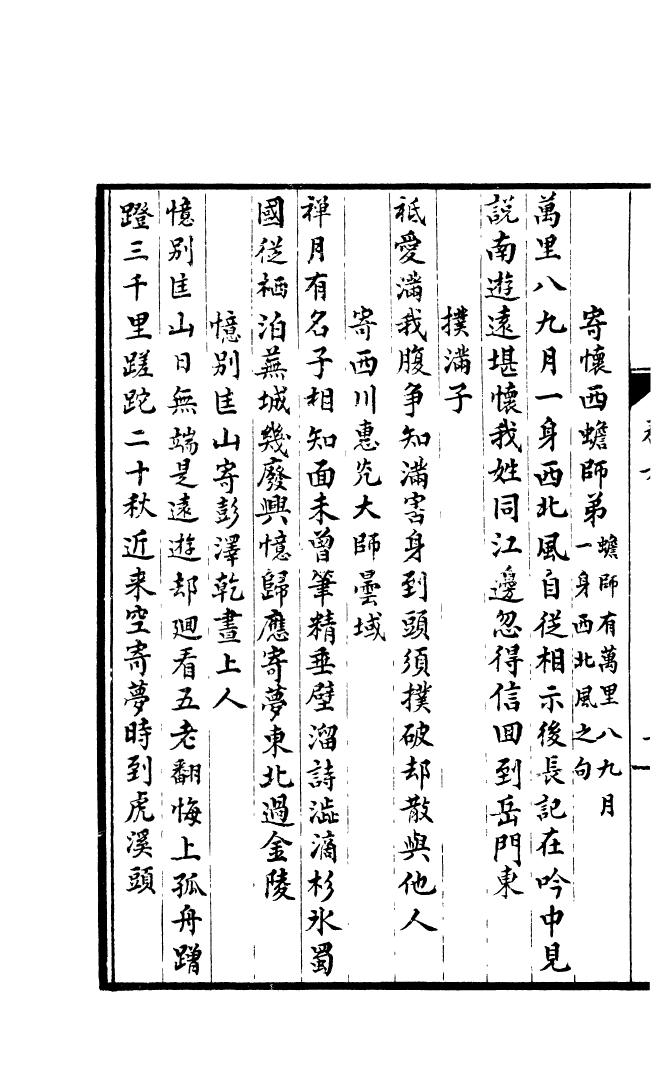 寄懷西蟾師弟蟾師有萬里八九月一身西北風之句
萬里八九月一身西北風自從相示後長記在吟中見
說南遊遠堪懷我姓同江邊忽得信回到岳門東
撲滿子
秪愛滿我腹爭知滿害身到頭須撲破却散與他人
寄西川惠光大師曇域
禪月有名子相知面未曾筆精垂壁溜詩澁滴杉氷蜀
國從栖泊蕪城幾廢興憶歸應寄夢東北過金陵
憶別匡山寄彭澤乾晝上人
憶別匡山日無端是遠遊却迴看五老翻悔上孤舟蹭
蹬三千里蹉跎二十秋近来空寄夢時到虎溪頭